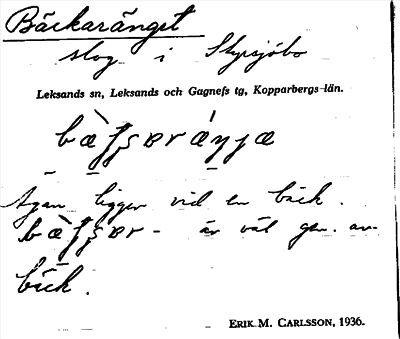 Bäckaränget
slog i Skyrsjöbo
Leksands sn, Leksands och Gagnefs tg, Kopparbergs län.
Ägan ligger vid en bäck.
är väl gen. av
bäck.
ERIK M. CARLSSON, 1936.